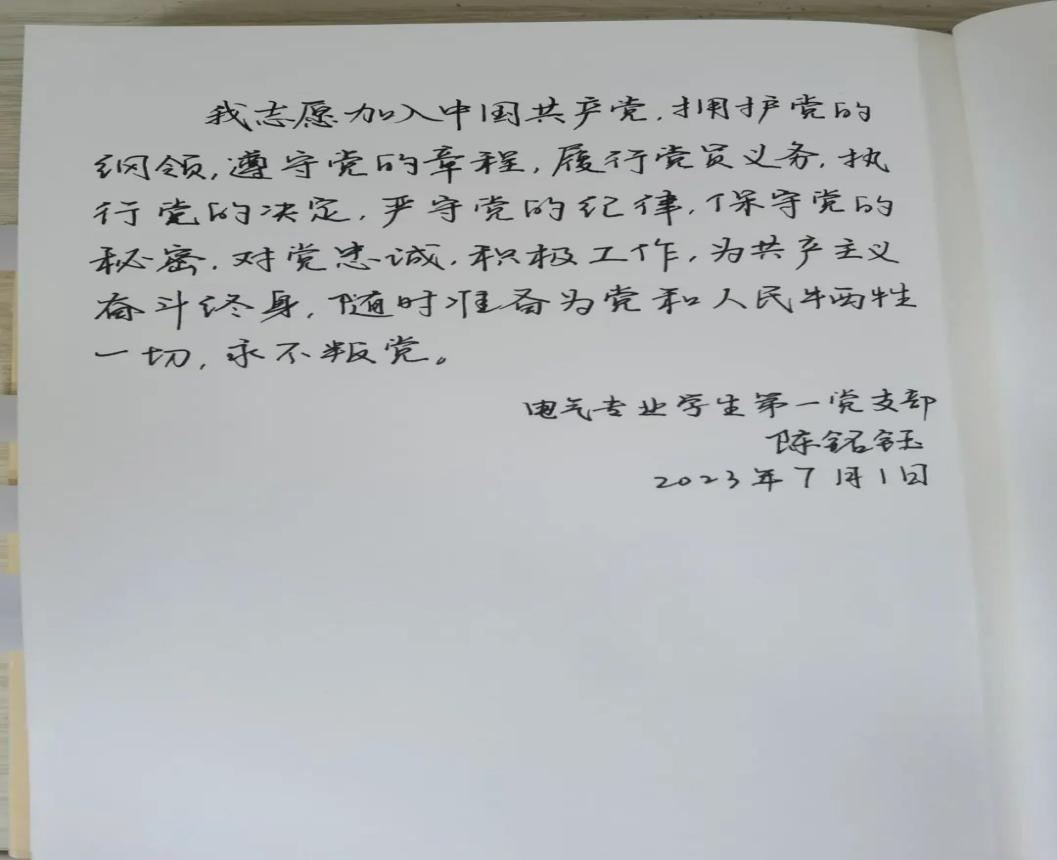 我志愿加入中国共产党，拥护党的
纲领，遵守党的章程，履行党员义务，执
行党的决定，严守党的纪律，保守党的
秘密，对党忠诚，积极工作，为共产主义
奋斗终身，随时准备为党和人民牺牲
一切，永不叛党。
电气专业学生第一党支部
陈铭钰
2023年7月1日